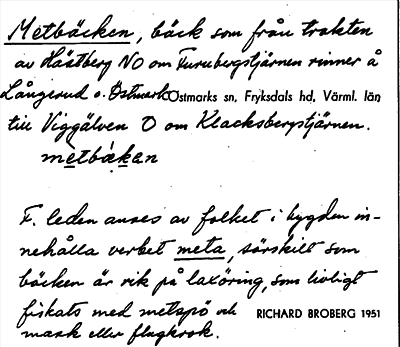 Metbäcken, bäck som från trakten
av Hästberg NO om Furubergstjärnen rinner å
Långerud o. Östmark Östmarks sn, Fryksdals hd, Värml. län
till Viggälven O om Klacksbergstjärnen.
metbäkan
F. leden anses av folket i bygden in-
nehålla verbet meta, särskilt som
bäcken är rik på laxöring, som livligt
fiskats med metspö och
mask eller flugkrok.
RICHARD BROBERG 1951